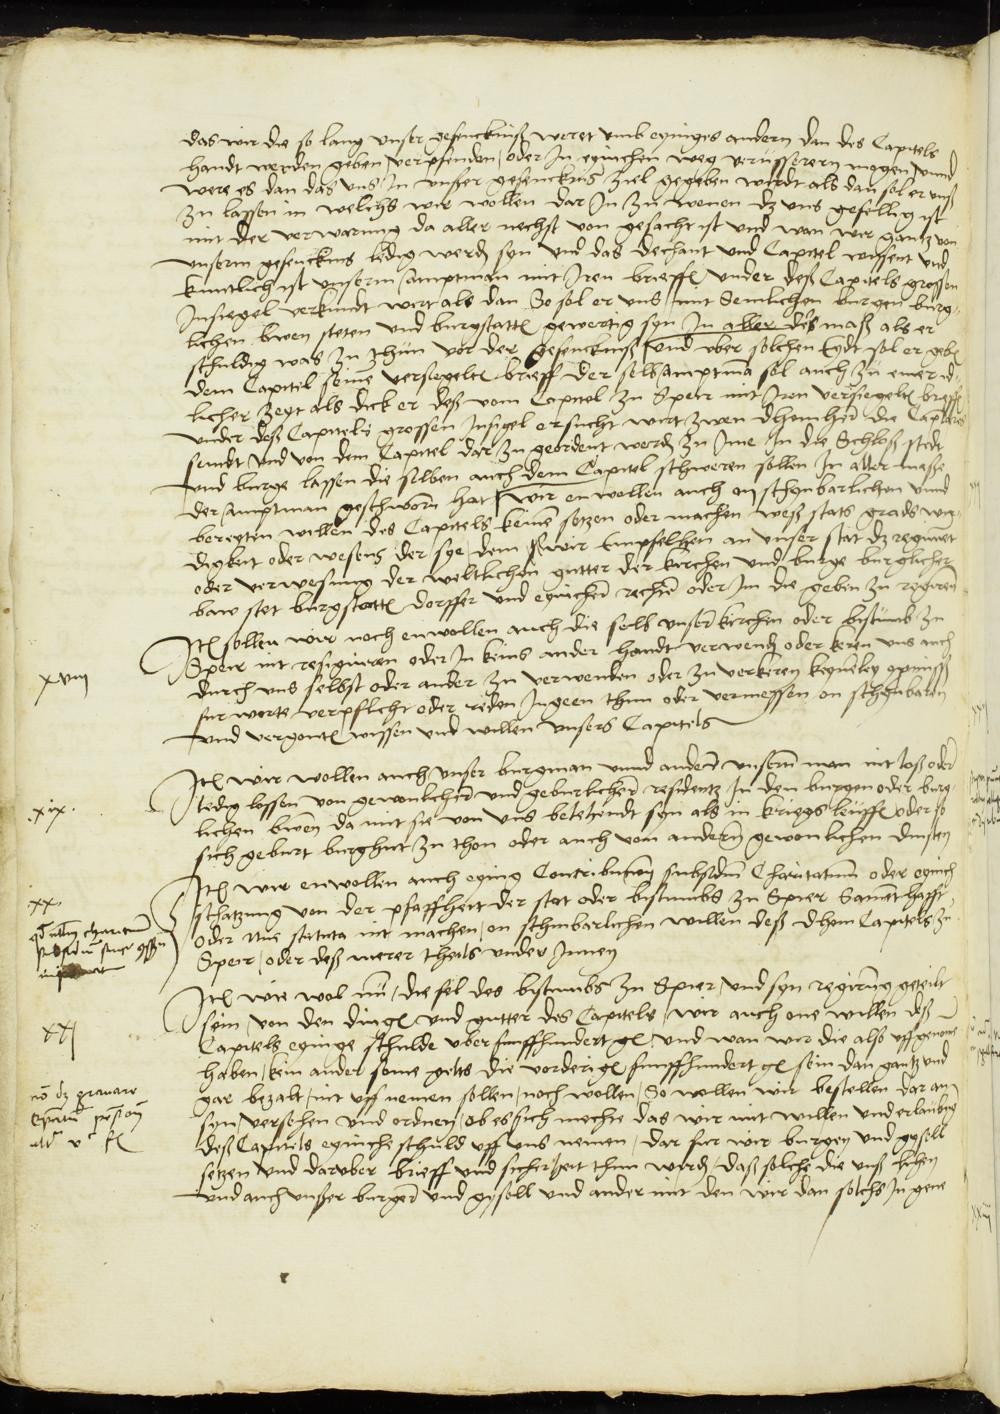 das wir die so lang unser gefencknüß weret umb eyniges andern dan des Capitels
handt werden geben verpfenden oder In eynichen weg verüsserern mogen / unnd
were es dan das uns In unser gefencknüs ziel gegeben wirdt als dan sol er unß
zu lassen in welchs wir wollen dar In zu wonen dz uns gefellig ist
mit der verwarung da aller nechst von gesacht ist und wan wir gantz von
unserm gefencknus ledig werdē syn und das dechant und Capitel wissent und
kuntlich ist unserm amptman mit Iren brieffē under deß Capitels grossen
Insiegel verkundt wirt als dan So sol er uns mit Semlichen burgen burg-
lichen bwen steten und burgstattē gewertig syn In aller der maß als er
schuldig was zu thün vor der gefencknuß / Und uber solchen Eydt sol er gebē
dem Capittel seinē versiegeltē brieff der selb amptmā sol auch zu einer id-
licher zeyt als dick er deß vom Capittel zu Speir mit Iren versiegeltē brieffē
under deß Capittels grossen Insigel ersucht wirt zwen dhomherrē die Capitels
sendt und von dem Capittel dar zu geordent werdē zu Ime In die Schloß stede
und burge lassen die selben auch dem Capittel schweren sollen In aller massē
der amptman geschworn hat / Wir en wollen auch on schynbarlichen und
beregten willen des Capitels keinē setzen oder machen weß stats grads wir-
digkeit oder wesens der sye dem wir Empfelhen an unser stat dz regimēt
oder verwesung der weltlichen gutter der kirchen und burge burglicher
baw stet burgstattē dorffer und eynichē rechtē oder Im die geben zu regirēn
xviii Itē sollen wir noch enwollen auch die selb unser kirchen oder bistumb zu
Speir nit resigniren oder In keins ander handt verwendē oder keren uns auch
durch uns selbst oder ander zu verwenden oder zu verkeren
fur worte verpflicht oder reden Ingeen thun oder vermessen on schynbaren
und vergontē wissen und willen unsers Capitels
xix. Itē wir wollen auch unser burgman unnd anderē unserm man nit loß oder
ledig lassen von gewonlicher und geburlicher residentz In den burgen oder burg-
lichen bwen da mit sie von uns beletendt syn als in kriegs leuffē oder so
sich geburt burghut zu thon oder auch von anderen gewonlichen dinsten
xx. Itē wir enwollen auch eynig Contribution subsidiū Charitatiuū oder eynich
schatzung von der pfaffheit der stat oder bistumbs zu Spier Samethafft
oder nue statuta nit machen on schinbarlichen willen deß dhom Capitels zu
Speir / oder deß merer theils under Innen
Itē wie wol nū die sel des bistumbs zu Speir / und syn regirūg geteilt
xxi sein / von den dingē und gutter des Capitels / wir auch one willen deß
Capitels eynige schulde uber funffhundert gl / und wan wir die also uffgenomē
haben / kein ander some gelts die vorderigē funffhundert gl sein dan gantz und
gar bezalt / nit uff nemen sollen / noch wollen / So wollen wir bestellen dar an
syn / versehen und ordnen / ob es sich mechte das wir mit willen und erlaubūg
deß Capitels eyniche schuld uff uns nemen / dar fur wir burgen und gysell
setzen und daruber brieff und sicherheit thun werdē / daß solche die uns lihen
und auch unser burgen und gysell und ander mit den wir dan solchs In gene